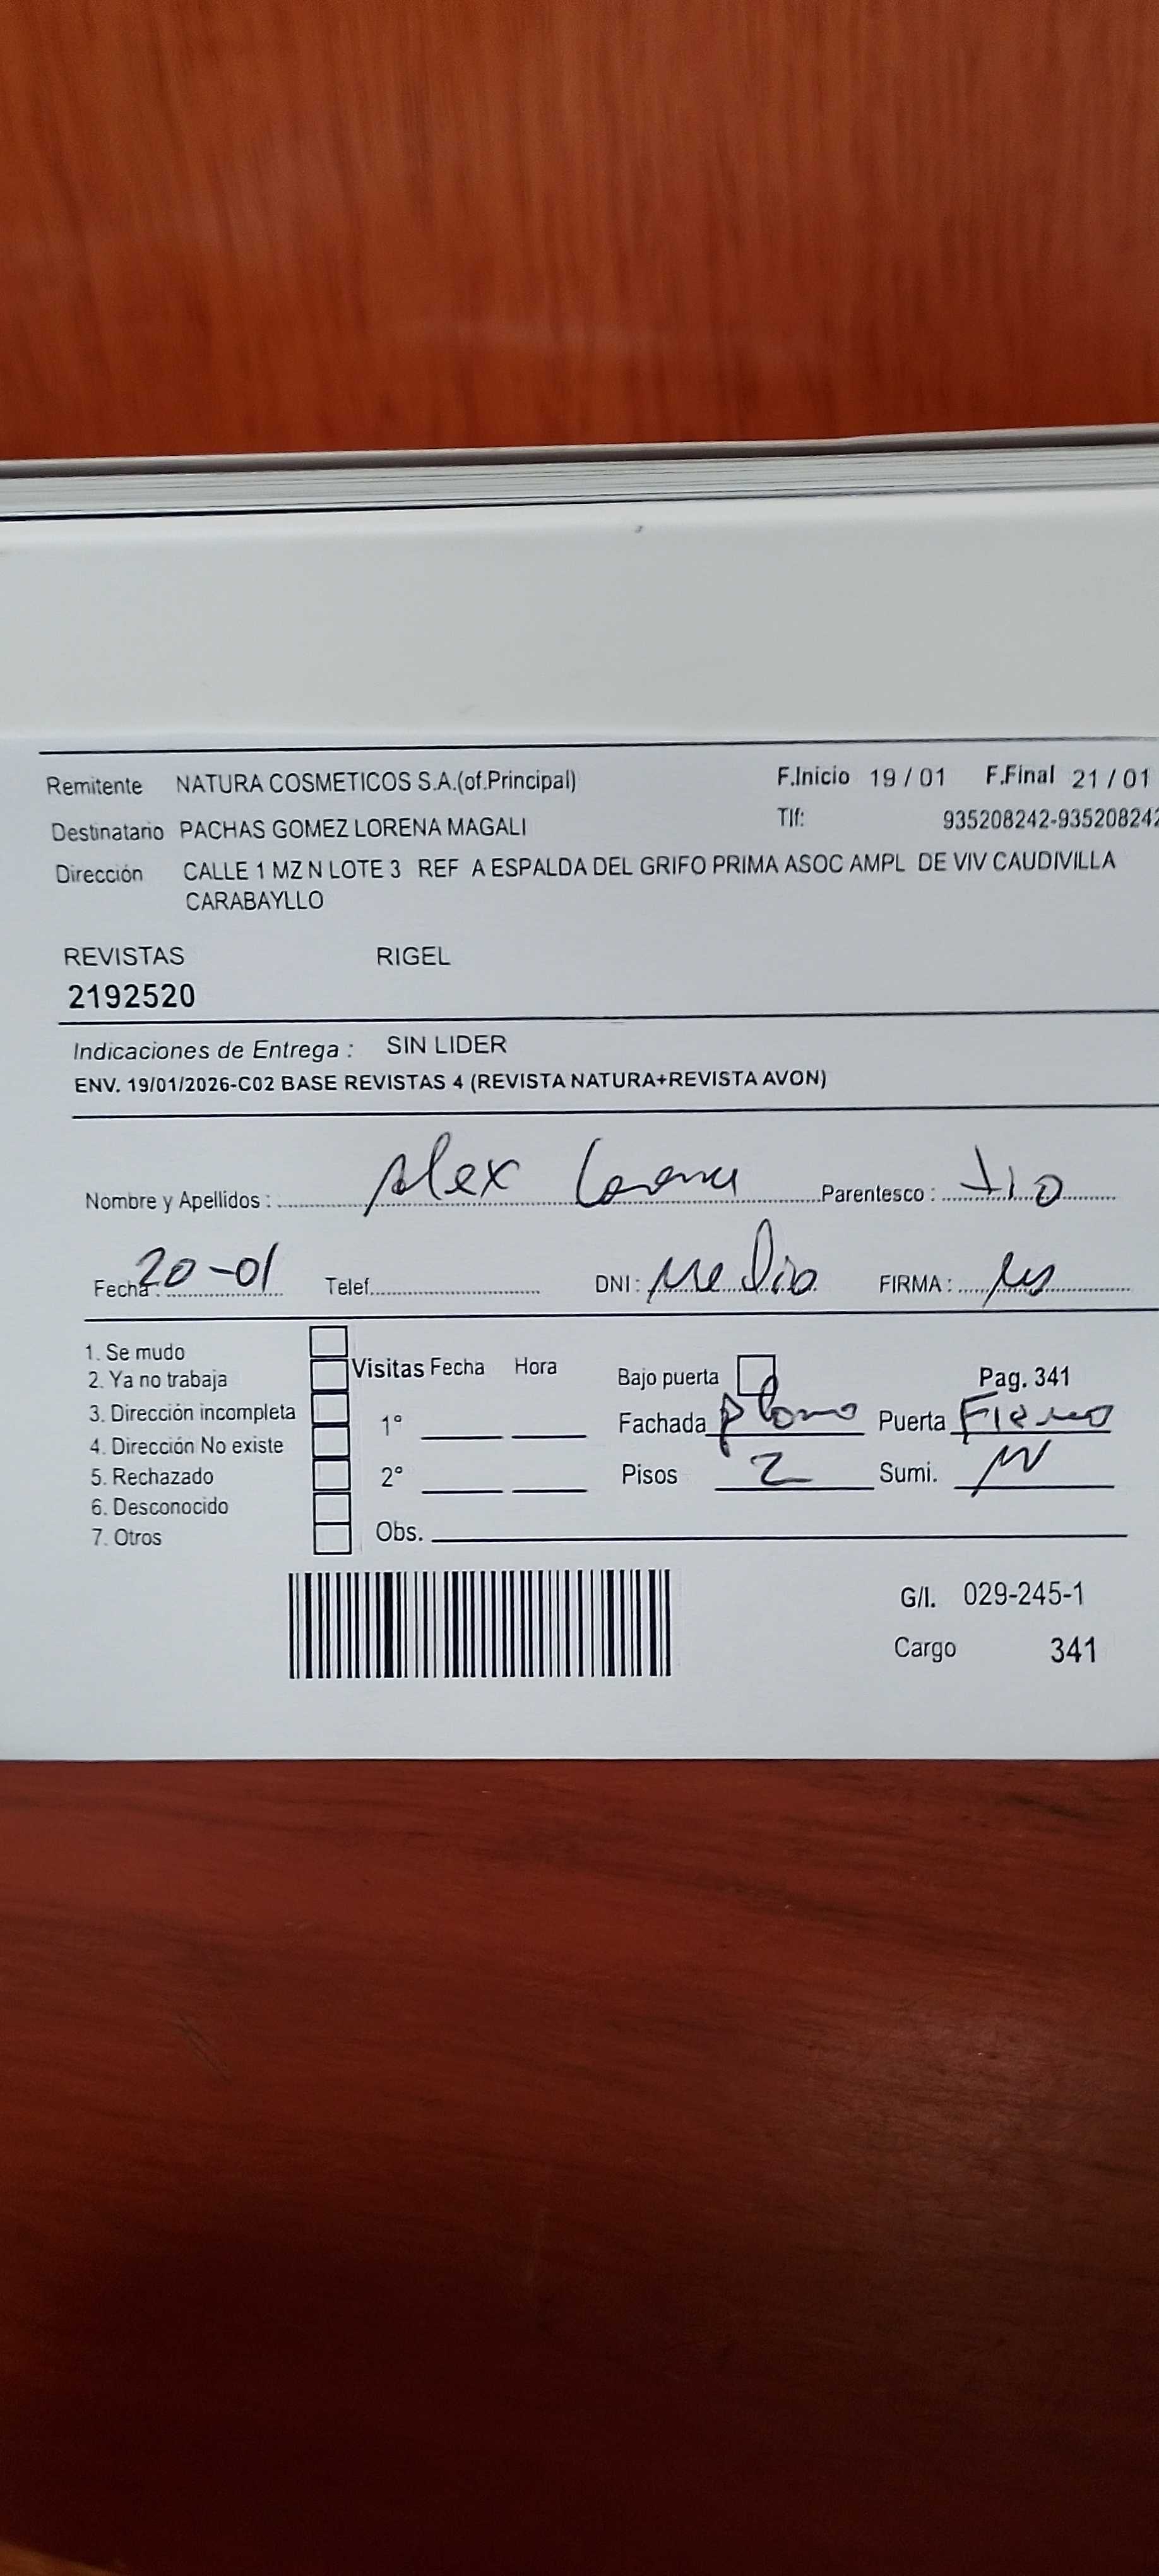 Remitente NATURA COSMETICOS S.A.(of.Principal) F.Inicio 19 / 01 F.Final 21 / 01
Destinatario PACHAS GOMEZ LORENA MAGALI Tlf: 935208242-935208242
Dirección CALLE 1 MZ N LOTE 3 REF A ESPALDA DEL GRIFO PRIMA ASOC AMPL DE VIV CAUDIVILLA
CARABAYLLO
REVISTAS RIGEL
2192520
Indicaciones de Entrega : SIN LIDER
ENV. 19/01/2026-C02 BASE REVISTAS 4 (REVISTA NATURA+REVISTA AVON)
Nombre y Apellidos : Alex Parentesco : tio
Fecha : 20-01 Telef. DNI : FIRMA :
1. Se mudo
2. Ya no trabaja Visitas Fecha Hora Bajo puerta Pag. 341
3. Dirección incompleta 1° Fachada plomo Puerta Fierro
4. Dirección No existe
5. Rechazado 2° Pisos 2 Sumi.
6. Desconocido
7. Otros Obs.
G/I. 029-245-1
Cargo 341